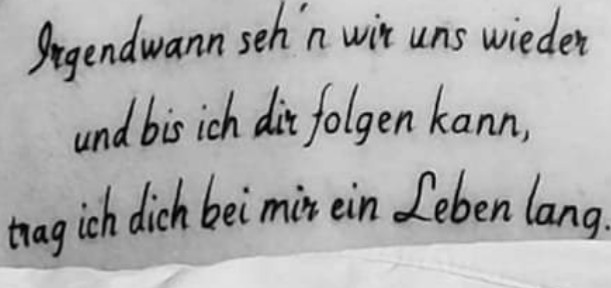 Irgendwann seh'n wir uns wieder
und bis ich dir folgen kann,
trag ich dich bei mir ein Leben lang.